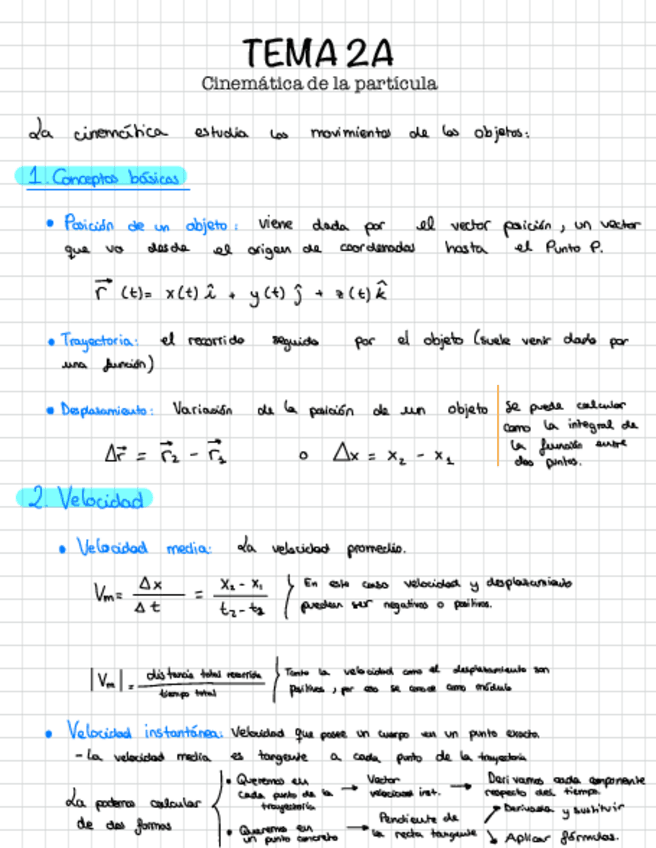 TEMA 2A
Cinemática de la partícula
La cinemática estudia los movimientos de los objetos:
1. Conceptos básicos
• Posición de un objeto: viene dada por el vector posición, un vector
que va desde el origen de coordenadas hasta el Punto P.
r⃗ (t)= x(t) î + y(t) ĵ + z(t) k̂
• Trayectoria: el recorrido seguido por el objeto (suele venir dado por
una función)
• Desplazamiento: Variación de la posición de un objeto
Δr⃗ = r⃗₂ - r⃗₁ o Δx = x₂ - x₁
Se puede calcular
como la integral de
la función entre
dos puntos.
2. Velocidad
• Velocidad media: La velocidad promedio.
Vm = Δx / Δt = x₂ - x₁ / t₂ - t₁
En este caso velocidad y desplazamiento
pueden ser negativos o positivos.
|Vm| = distancia total recorrida / tiempo total
Tanto la velocidad como el desplazamiento son
positivos, por eso se conoce como módulo
• Velocidad instantánea: Velocidad que posee un cuerpo en un punto exacto.
- La velocidad media es tangente a cada punto de la trayectoria
La podemos calcular
de dos formas
• Queremos en
cada punto de la
trayectoria
→ Vector
velocidad inst.
→ Derivamos cada componente
respecto del tiempo.
• Queremos en
un punto concreto
→ Pendiente de
la recta tangente
Derivada y sustituir
Aplicar fórmulas.